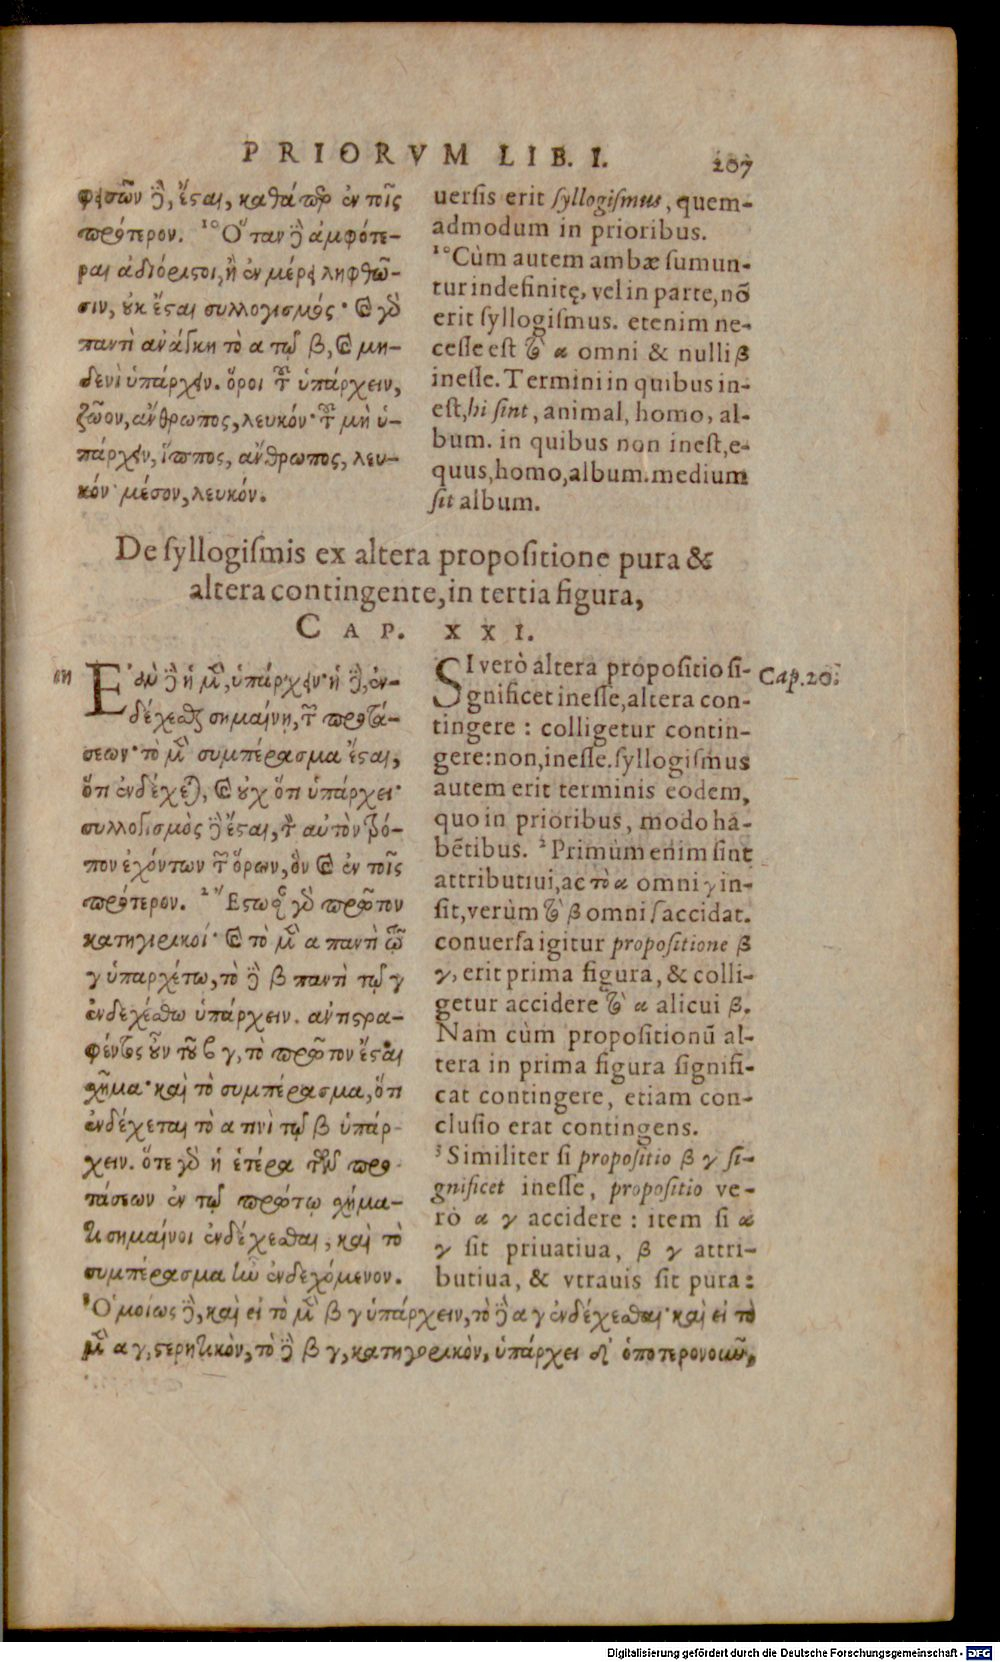 PRIORVM LIB. I. 207
φεισῶν δὲ, ἔςαι, καθάπερ ἐν τοῖς
πρότερον. ¹⁰ Ὅταν δὲ ἀμφότε-
ραι ἀδιόριςοι, ἢ ἐν μέρει ληφθῶ-
σιν, οὐκ ἔςαι συλλογισμός· καὶ γὰρ
παντὶ ἀνάγκη τὸ α τῷ β, καὶ μη-
δενὶ ὑπάρχειν. ὅροι τοῦ ὑπάρχειν,
ζῶον, ἄνθρωπος, λευκόν· τοῦ μὴ ὑ-
πάρχειν, ἵππος, ἄνθρωπος, λευ-
κόν· μέσον, λευκόν.
uersis erit syllogiſmus, quem-
admodum in prioribus.
¹⁰Cùm autem ambæ ſumun-
tur indefinitę, vel in parte, nō
erit ſyllogiſmus. etenim ne-
ceſſe eſt τὸ α omni & nulli β
ineſſe. Termini in quibus in-
eſt, hi ſint, animal, homo, al-
bum. in quibus non ineſt, e-
quus, homo, album. medium
ſit album.
De ſyllogiſmis ex altera propoſitione pura &
altera contingente, in tertia figura,
CAP. XXI.
Ἐὰν δὲ ἡ μὲν, ὑπάρχειν· ἡ δὲ, ἐν-
δέχεσθαι σημαίνῃ, τῶν προτά-
σεων· τὸ μὲν συμπέρασμα ἔςαι,
ὅτι ἐνδέχεται, καὶ οὐχ ὅτι ὑπάρχει·
συλλογισμὸς δὲ ἔςαι, τὸν αὐτὸν τρό-
πον ἐχόντων τῶν ὅρων, ὃν καὶ ἐν τοῖς
πρότερον. ² Ἔςωσαν γὰρ πρῶτον
κατηγορικοί· καὶ τὸ μὲν α παντὶ τῷ
γ ὑπαρχέτω, τὸ δὲ β παντὶ τῷ γ
ἐνδεχέσθω ὑπάρχειν. ἀντιςρα-
φέντος οὖν τοῦ β γ, τὸ πρῶτον ἔςαι
σχῆμα· καὶ τὸ συμπέρασμα, ὅτι
ἐνδέχεται τὸ α τινὶ τῷ β ὑπάρ-
χειν. ὅτε γὰρ ἡ ἑτέρα τῶν προ-
τάσεων ἐν τῷ πρώτῳ σχήμα-
τι σημαίνοι ἐνδέχεσθαι, καὶ τὸ
συμπέρασμα ἦν ἐνδεχόμενον.
SI verò altera propoſitio ſi-
gnificet ineſſe, altera con-
tingere : colligetur contin-
gere: non, ineſſe. ſyllogiſmus
autem erit terminis eodem,
quo in prioribus, modo ha-
bētibus. ² Primùm enim ſint
attributiui, ac τὸ α omni γ in-
ſit, verùm τὸ β omni γ accidat.
conuerſa igitur propoſitione β
γ, erit prima figura, & colli-
getur accidere τὸ α alicui β.
Nam cùm propoſitionū al-
tera in prima figura ſignifi-
cat contingere, etiam con-
cluſio erat contingens.
³ Similiter ſi propoſitio β γ ſi-
gnificet ineſſe, propoſitio ve-
rò α γ accidere : item ſi α
γ ſit priuatiua, β γ attri-
butiua, & vtrauis ſit pura:
Cap. 20.
³ Ὁμοίως δὲ, καὶ εἰ τὸ μὲν β γ ὑπάρχειν, τὸ δὲ α γ ἐνδέχεσθαι· καὶ εἰ τὸ
μὲν α γ, ςερητικὸν, τὸ δὲ β γ, κατηγορικὸν, ὑπάρχει δὲ ὁποτερονοῦν,
Digitalisierung gefördert durch die Deutsche Forschungsgemeinschaft - DFG